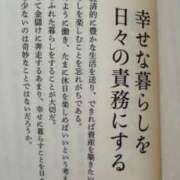 幸せな暮らしを
日々の責務にする
経済的に豊かな生活を送り、できれば資産を築きたい
しを楽しむことを忘れがちである。
ように働き、たまに休日を楽しめばいいという考え
ふれた暮らしをすることが大切だ。
て金儲けに奔走するあまり、幸せに暮らすことを日々
少ないのは奇妙なことではないだろうか